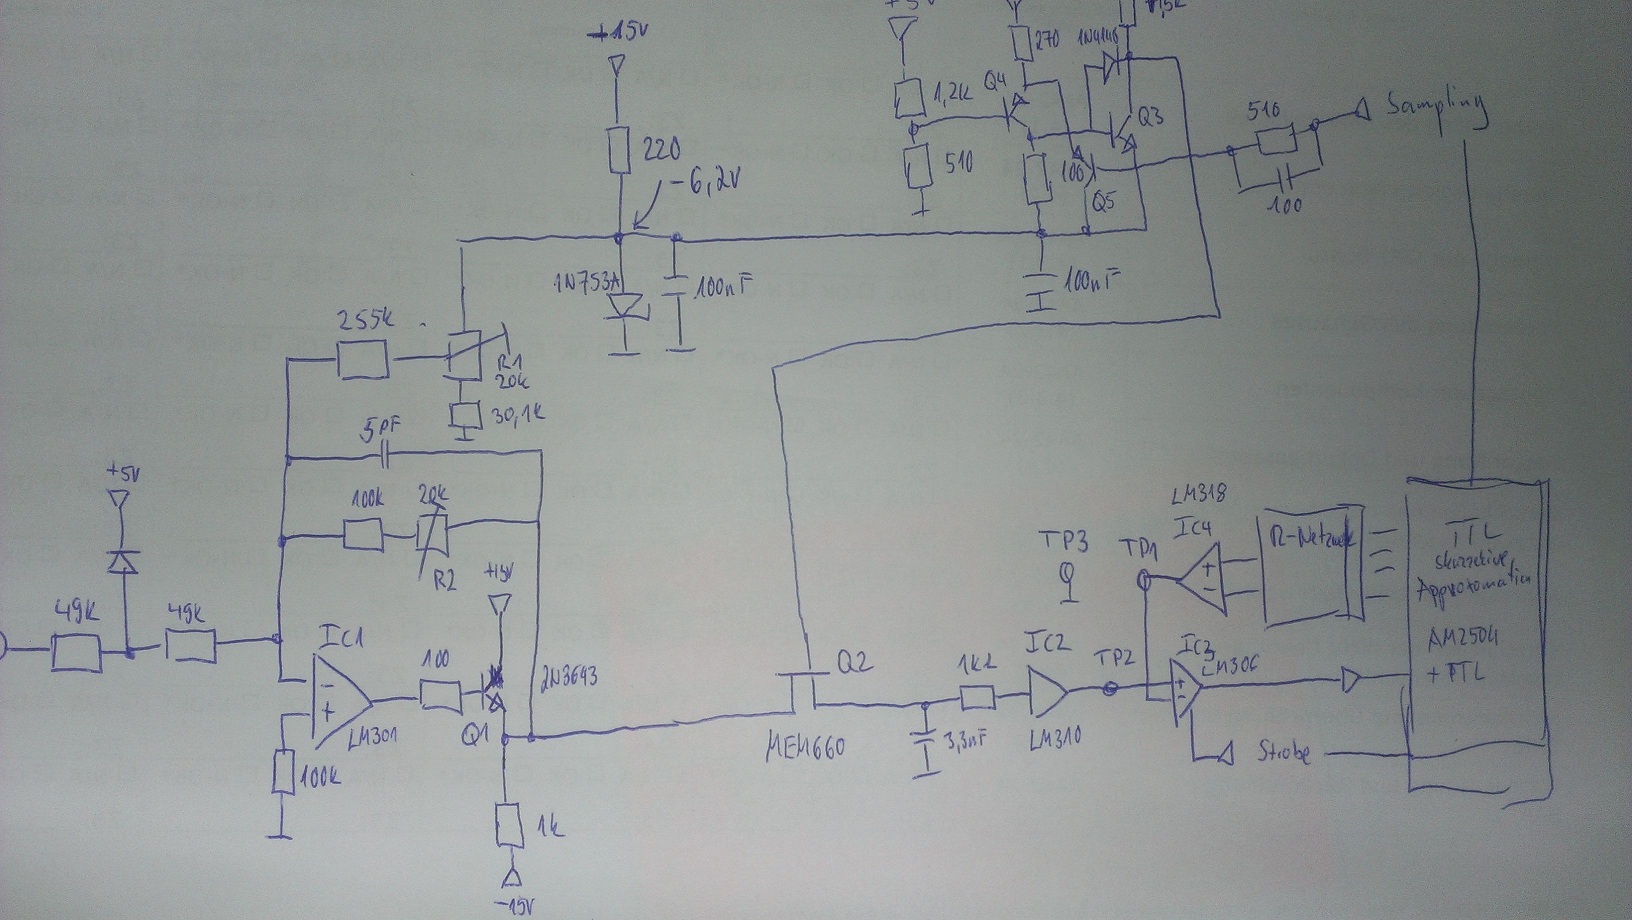 +15V
220
-6,2V
1N753A
100nF
+5V
1,2K
510
270
Q4
1N4148
1,5k
Q3
100
Q5
100nF
510
100
Sampling
255k
R1
20k
30,1k
5pF
100k
20k
R2
+5V
49K
49K
IC1
LM301
100k
100
+15V
2N3643
Q1
1k
-15V
Q2
MEM660
3,3nF
1K2
IC2
LM310
TP2
TP3
TP1
LM318
IC4
R-Netzwerk
IC3
LM306
Strobe
TTL
Approximation
AM2504
+ TTL